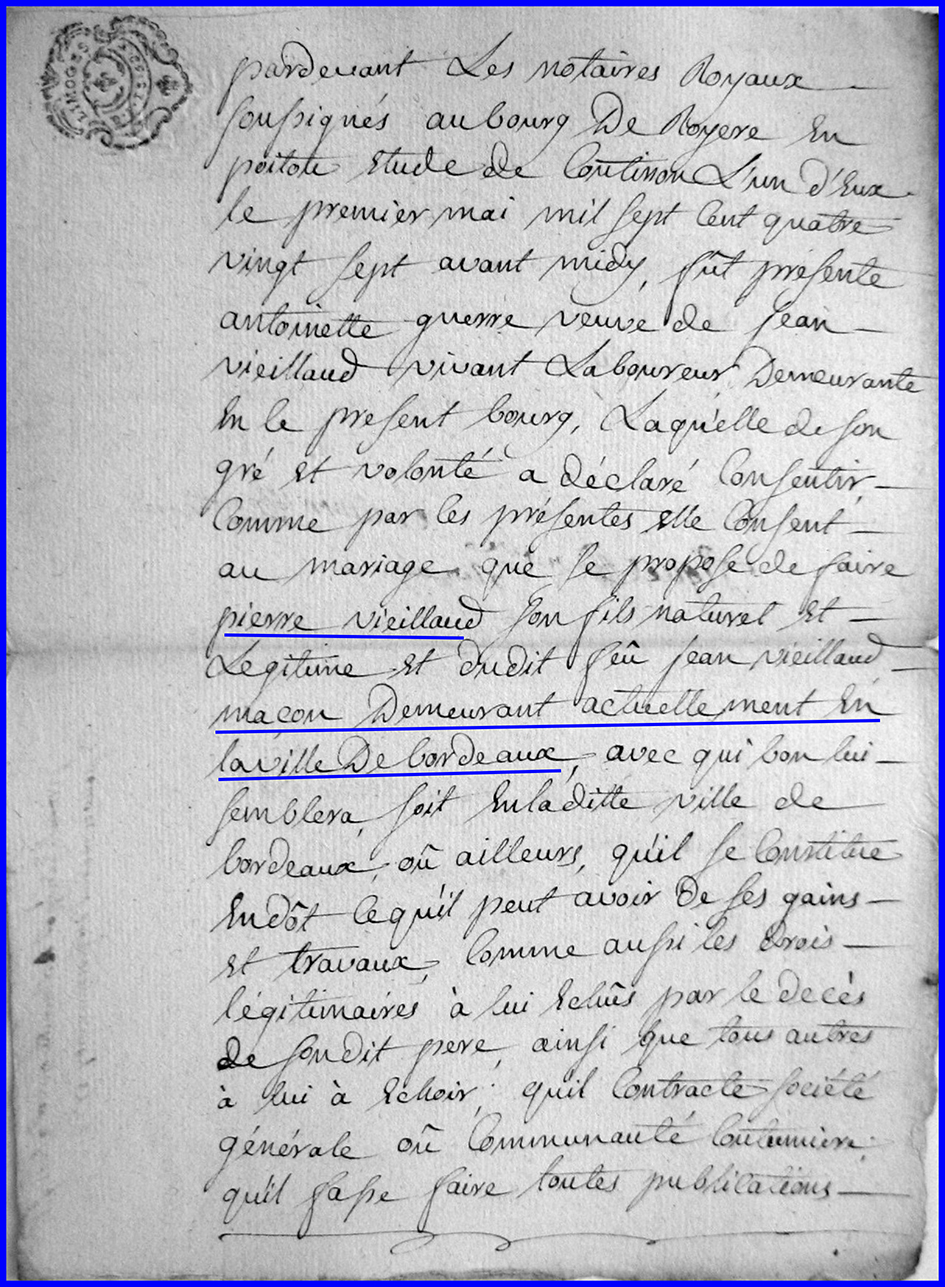 LIMOGES
pardevant Les notaires Royaux
soussignés au bourg De Royere En
poitou Etude de Coutisson L'un d'Eux
le premier mai mil sept Cent quatre
vingt sept avant midy, fût presente
antoinette guerre veuve de jean
vieillaud vivant Laboureur Demeurante
En le present bourg, Laquelle de son
gré et volonté a déclaré Consentir
Comme par les présentes elle Consent
au mariage que se propose de faire
pierre vieillaud son fils naturel et
Legitime et dudit feû jean vieillaud
maçon Demeurant actuellement En
la ville De bordeaux, avec qui bon lui
semblera, soit En la ditte ville de
bordeaux, oû ailleurs, qu'il se Constitue
En dôt ce qu'il peut avoir de ses gains
et travaux, Comme aussi les drois
légitimaires à lui Echûs par le decès
de son dit pere, ainsi que tous autres
à lui à Echoir; qu'il Contracte société
générale oû Communauté Coutumiere,
qu'il fasse faire toutes publications